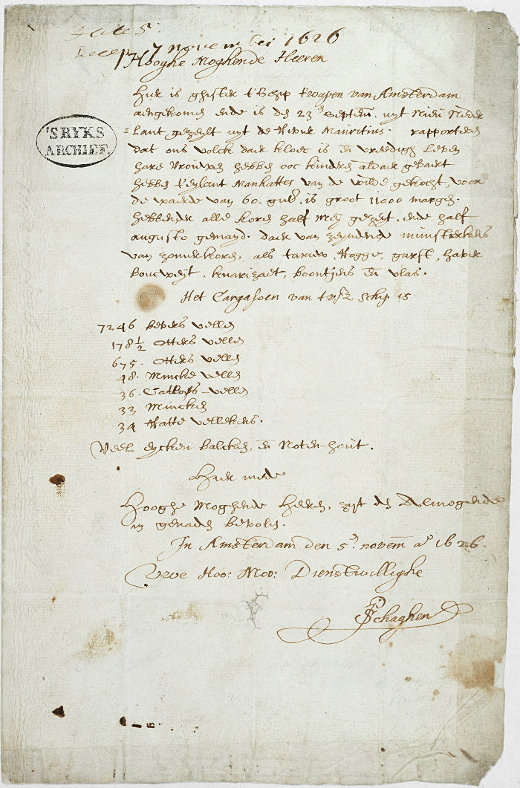 7 novembri 1626
Hooghe Moghende Heeren
Hier is ghister t'Schip t'wapen van Amsterdam
aengekomen ende is den 23en Septem. uyt Nieu Neder
Lant gezeylt uyt de Rivier Mauritius. rapporteren
dat ons volck daer kloec is en vreedigh leven
hare vrouwen hebben ooc kinderen aldaer gebaert
hebben t'eylant Manhattes van de wilde gekocht, voor
de waerde van 60. guld. is groot 11000 morgen.
hebbende alle koren half Mey gezeyt, ende half
augusto gemayd. daer van zeyndende munsterkens
van zomerkoren, als tarruw, Rogge, garst, haver
boucweyt, knarizaet, boontjens en vlas.
Het Cargasoen van tvsz schip is
7246 bevers vellen
178½ otters vellen
675. otters vellen
48. Mincke vellen
36. Catloes vellen
33 Mincken
34 Ratte vellekens.
Veel eycken balcken, en Noten hout.
Hier mede
Hooghe Moghende Heeren, zijt den Almogende
in genade bevolen.
In Amsterdam den 5en novem ao 1626.
Uwe Hoo: Moo: Dienstwillighe
PSchaghen
'SRYKS
ARCHIEF.